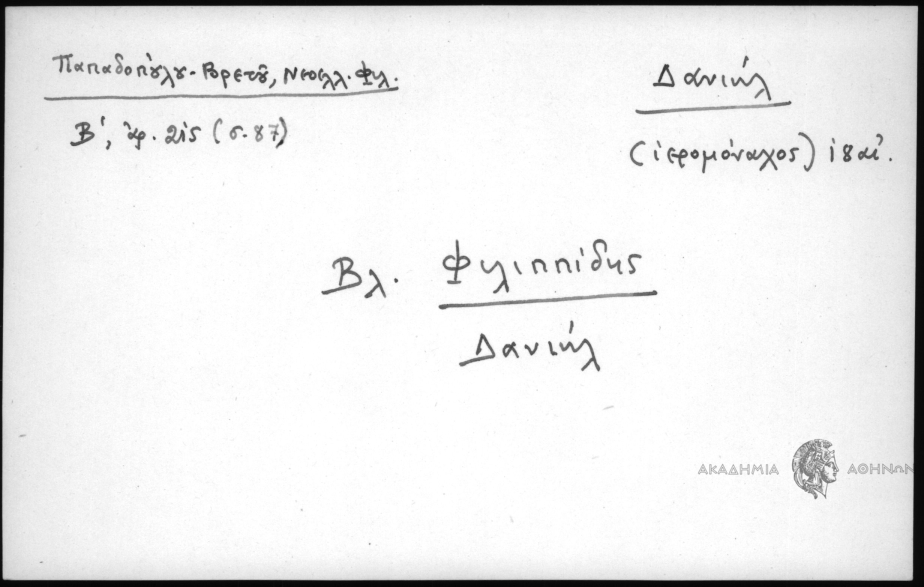 Παπαδοπούλου-Βρετοῦ, Νεοελλ. Φιλ.
Β', ἀρ. 215 (σ. 87)
Δανιήλ
(ἱερομόναχος) ι8 αἰ.
Βλ. Φιλιππίδης
Δανιήλ
ΑΚΑΔΗΜΙΑ ΑΘΗΝΩΝ